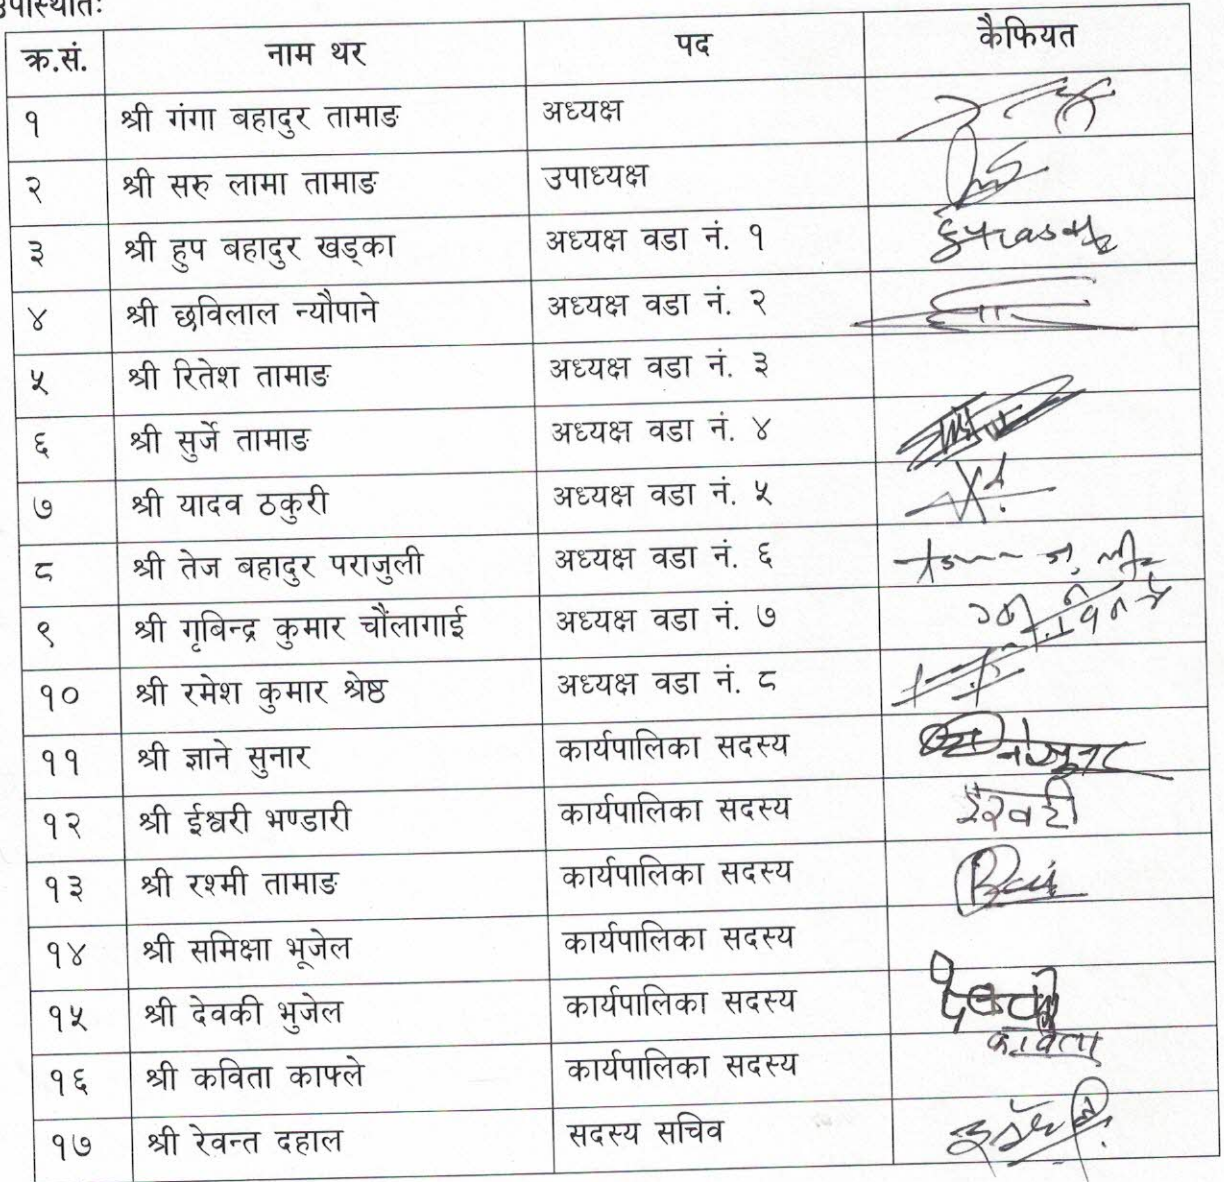 उपस्थितिः
क्र.सं. नाम थर पद कैफियत
१ श्री गंगा बहादुर तामाङ अध्यक्ष
२ श्री सरु लामा तामाङ उपाध्यक्ष
३ श्री हुप बहादुर खड्का अध्यक्ष वडा नं. १
४ श्री छविलाल न्यौपाने अध्यक्ष वडा नं. २
५ श्री रितेश तामाङ अध्यक्ष वडा नं. ३
६ श्री सुर्जे तामाङ अध्यक्ष वडा नं. ४
७ श्री यादव ठकुरी अध्यक्ष वडा नं. ५
८ श्री तेज बहादुर पराजुली अध्यक्ष वडा नं. ६
९ श्री गृबिन्द्र कुमार चौंलागाई अध्यक्ष वडा नं. ७
१० श्री रमेश कुमार श्रेष्ठ अध्यक्ष वडा नं. ८
११ श्री ज्ञाने सुनार कार्यपालिका सदस्य
१२ श्री ईश्वरी भण्डारी कार्यपालिका सदस्य
१३ श्री रश्मी तामाङ कार्यपालिका सदस्य
१४ श्री समिक्षा भूजेल कार्यपालिका सदस्य
१५ श्री देवकी भुजेल कार्यपालिका सदस्य देवकी
१६ श्री कविता काफ्ले कार्यपालिका सदस्य कविता
१७ श्री रेवन्त दहाल सदस्य सचिव